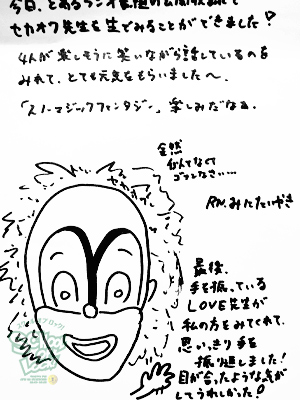 今日、とあるラジオ番組の公開収録で
セカオワ先生を生でみることができました!
4人が楽しそうに笑いながら話しているのを
みれて、とても元気をもらいました〜。
「スノーマジックファンタジー」楽しみだなぁ。
全然
似てなくて
ゴランなさい…
RN.みにたいやき
最後、
手を振っている
LOVE先生が
私の方をみてくれて、
思いっきり手を
振り返しました!
目が合ったような気が
してうれしかった!